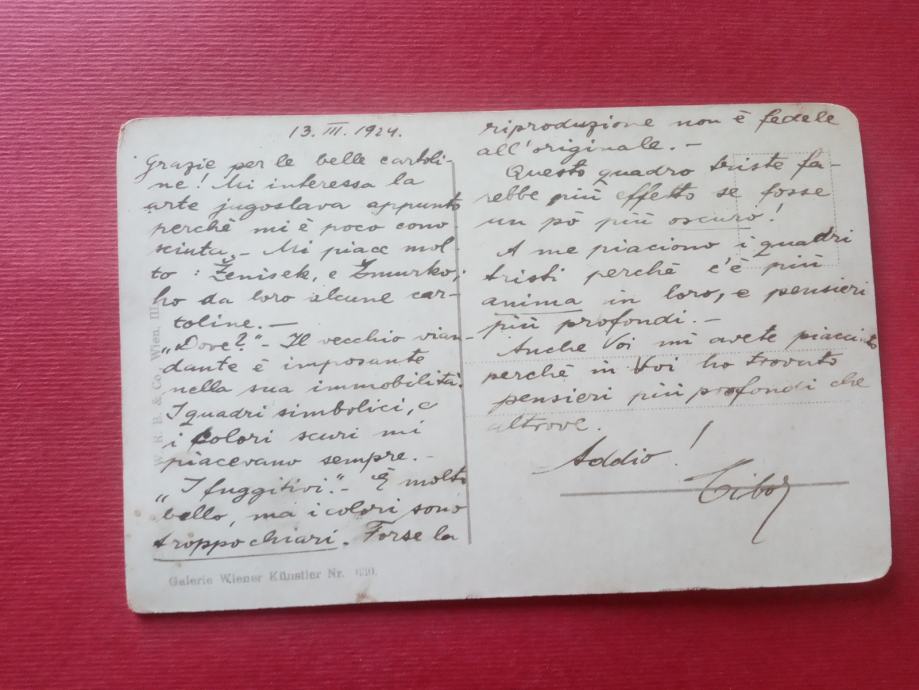 13. III. 1924.
Grazie per le belle cartoli-
ne! Mi interessa la
arte jugoslava appunto
perchè mi è poco cono
sciuta. - Mi piace mol
to : Ženisek, e Žmurko;
ho da loro alcune car-
toline. -
„Dove?" - Il vecchio vian-
dante è imposante
nella sua immobilità.
I quadri simbolici, e
i colori scuri mi
piacevano sempre. -
„I fuggitivi." - È molto
bello, ma i colori sono
troppo chiari. Forse la
riproduzione non è fedele
all'originale. -
Questo quadro triste fa-
rebbe più effetto se fosse
un pò più oscuro!
A me piaciono i quadri
tristi perchè c'è più
anima in loro, e pensieri
più profondi. -
Anche Voi mi avete piaciuto
perchè in Voi ho trovato
pensieri più profondi che
altrove.
Addio!
Tibor
W. R. B. & Co. Wien, III
Galerie Wiener Künstler Nr.